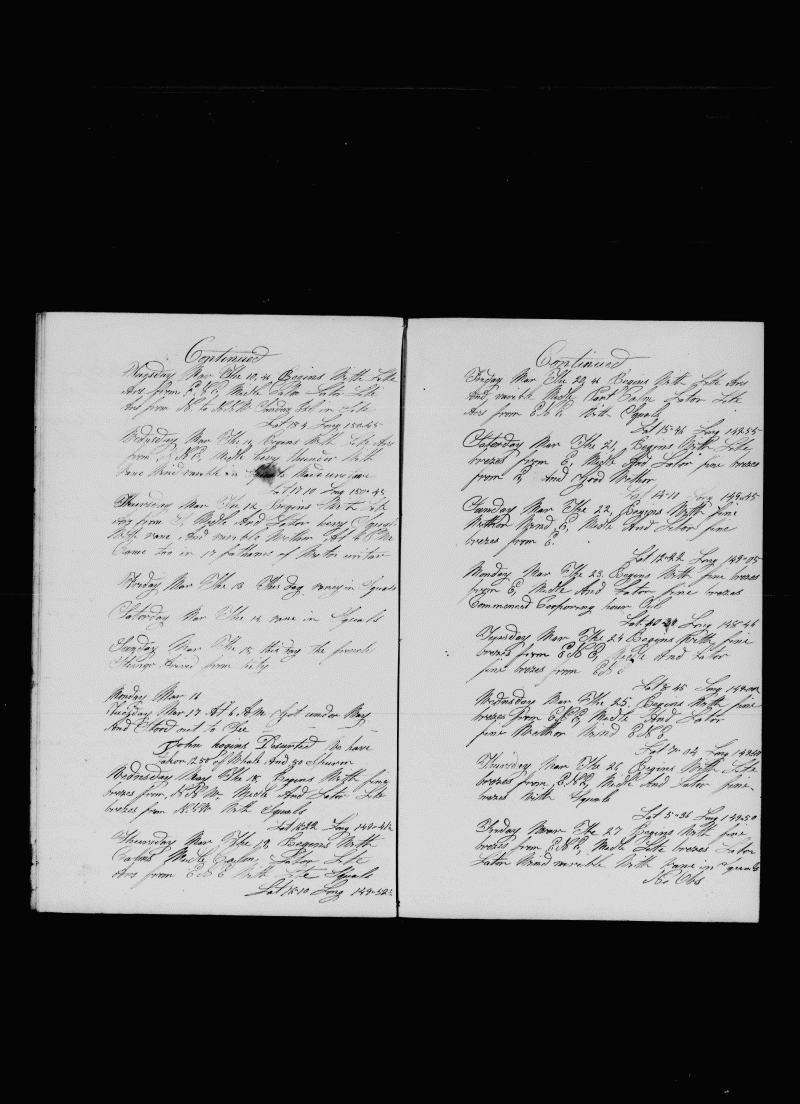 Continued
Tuesday Mar The 10, Begins With Lite
Airs from E N E, Middle Calm Lator Lite
Airs from N to
Lat 18-4 Long 150-45
Wednesday Mar The 11, Begins With Lite Airs
from N E, Middle havy thunder With
rane Wind varable in
Lat 17-10 Long 150-43
Thursday Mar The 12, Begins With Lite
from Middle And Lator havy Squals
With rane And varable Wether At 6 P M
Came too in 17 fathoms of Wator
Friday Mar The 13 This Day raney in Squals
Saturday Mar The 14 rane in Squals
Sunday Mar The 15 this day the
from
Monday Mar 16
Tuesday Mar 17 At 6 A.M. Got under Way
And Stood out to See
John Rogins Desurted We have
Takon 250 of Whale And 30 Sperm
Wednesday Mar The 18, Begins With fine
brezes from, N N W. Middle And Lator Lite
brezes from N N W With Squals
Lat Long 149-42
Thursday Mar The 19, Begins With
Calms Middle Calm, Lator Lite
Airs from E N E With Lite Squals
Lat 16-10 Long 149-52
Continued
Friday Mar The 20, Begins With Lite Airs
And varible Middle Part Calm Lator Lite
Airs from E N E With Squals
Lat 15-36 Long 149-55
Saturday Mar The 21, Begins With Lite
brezes from E, Middle And Lator fine brezes
from E And Good Wether
Lat 14-10 Long 149-45
Sunday Mar The 22, Begins With fine
Wether Wind E, Middle And Lator fine
brezes from E.
Lat 12-22 Long 149-05
Monday Mar The 23. Begins With fine brezes
from E, Middle And Lator fine brezes
Commenced Coopering hour Oil
Lat 10-30 Long 148-46
Tuesday Mar The 24 Begins With fine
brezes from E N E, Middle And Lator
fine brezes from E N E
Lat 8-45 Long
Wednesday Mar The 25, Begins With fine
brezes from E N E, Middle And Lator
fine Wether Wind E N E.
Lat 7-04 Long
Thursday Mar The 26, Begins With Lite
brezes from E N E, Middle And Lator fine
brezes With Squals
Lat 5-36 Long 149-50
Friday Mar The 27 Begins With fine
brezes from E N E, Middle Lite brezes Lator
Lator Wind varable With rane in Squals
No Obs